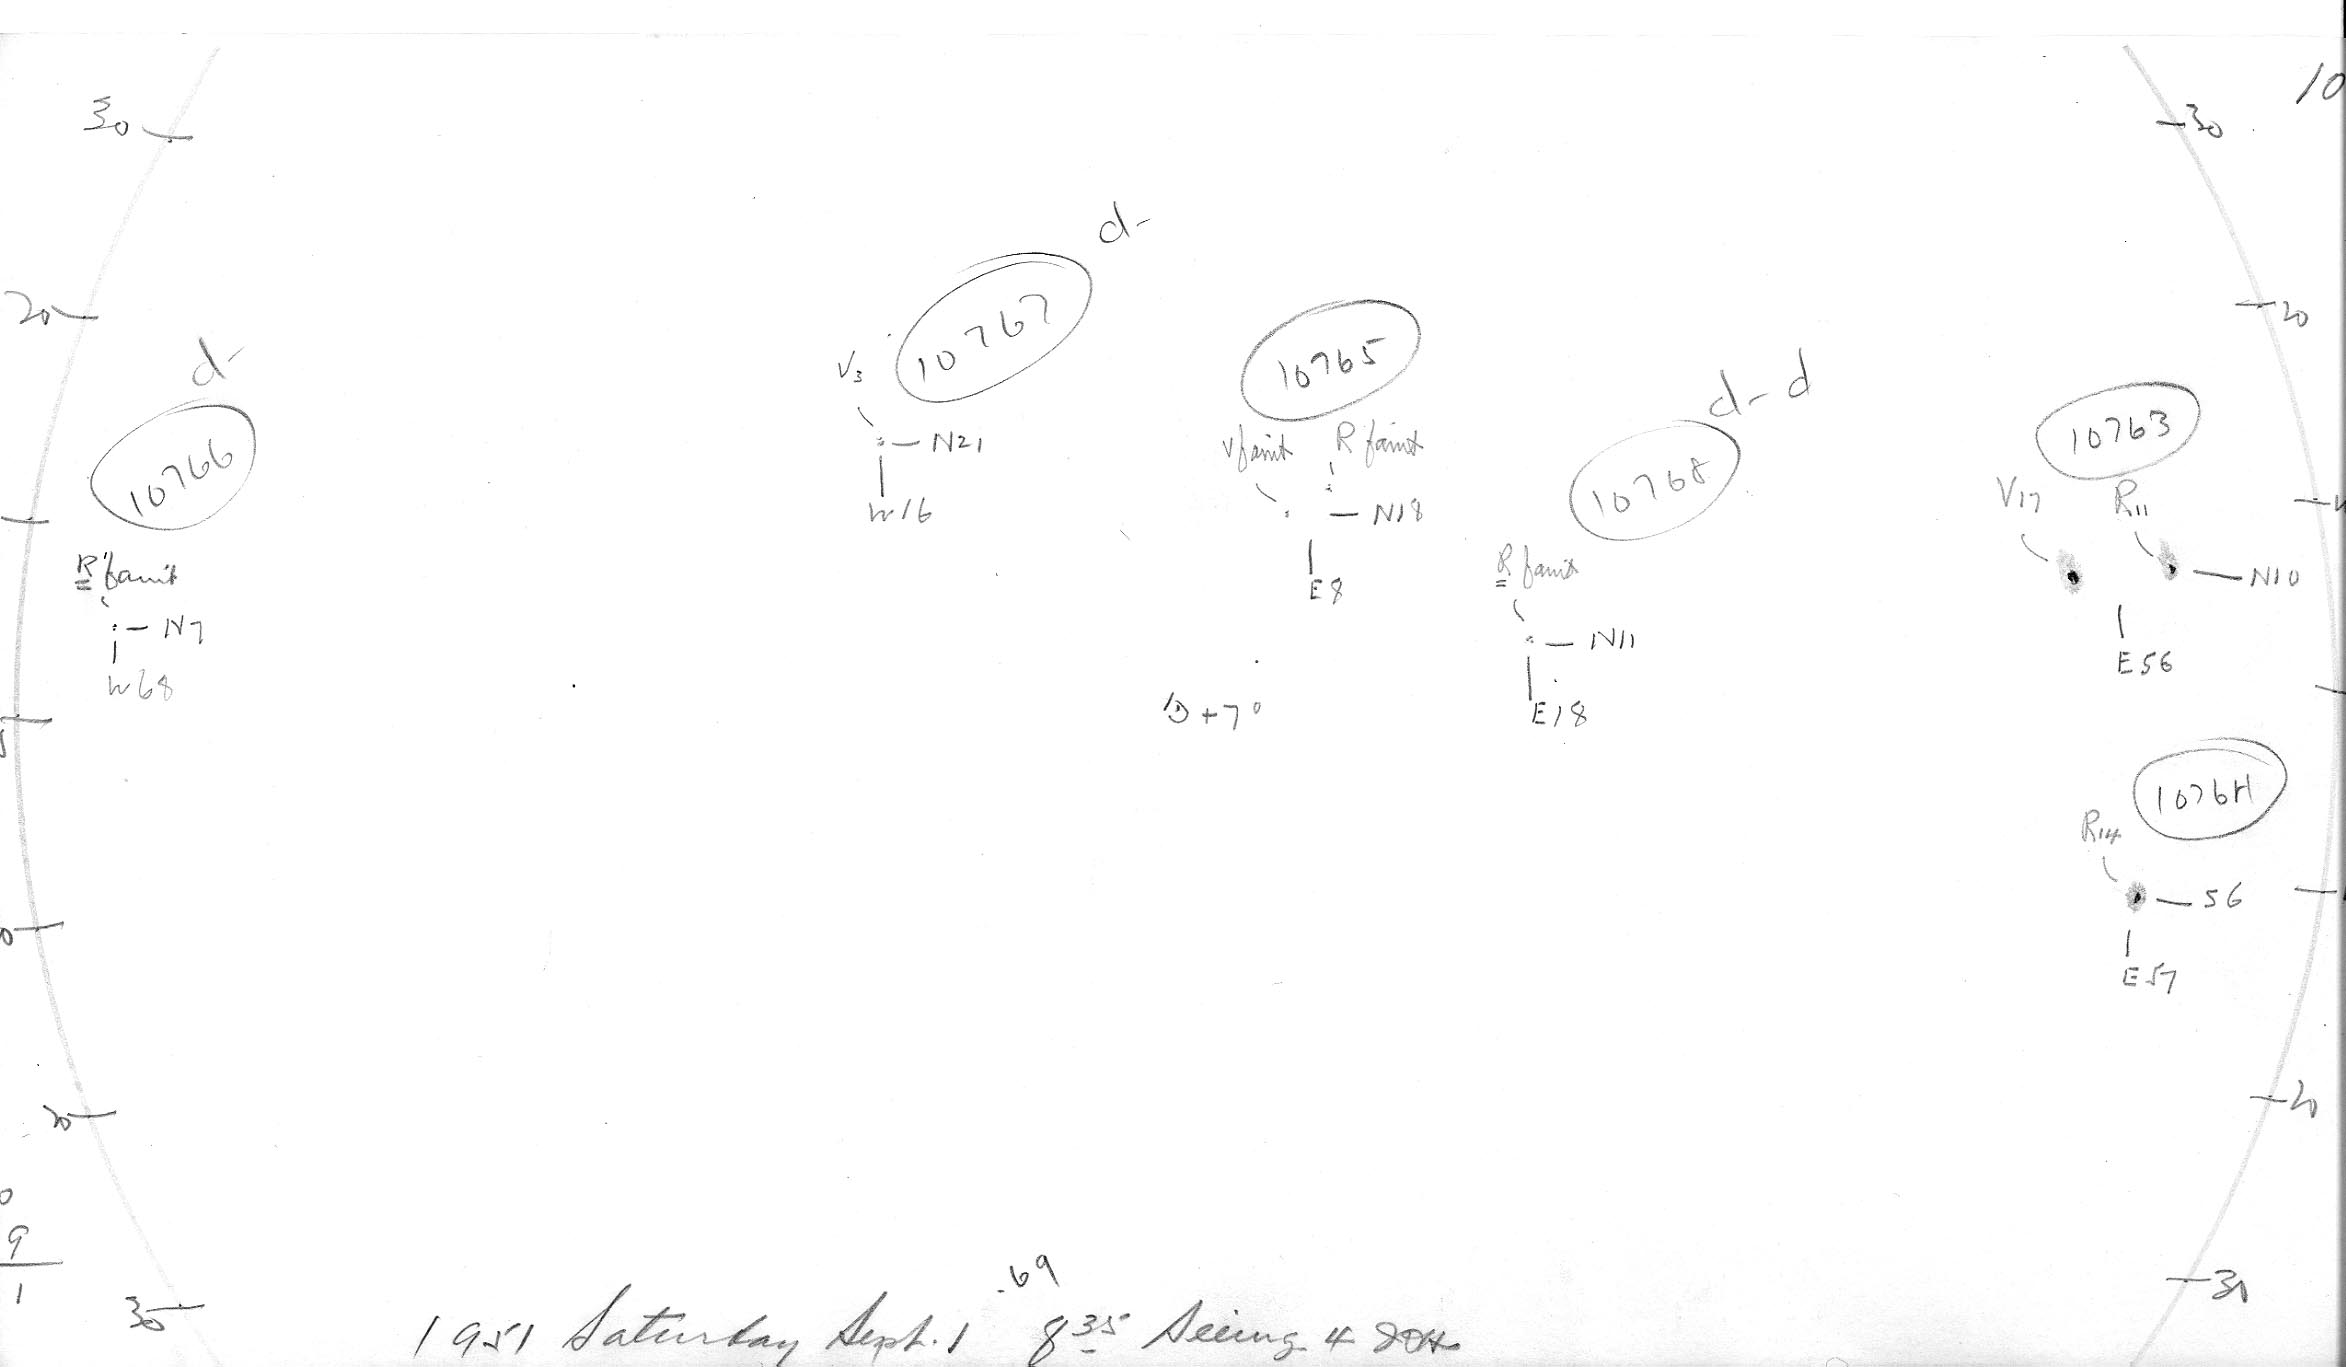 30
30
10
20
20
d-
10767
V3
N21
W16
10765
V faint
R faint
N18
E8
d-
10766
R faint
N7
W68
d- d
10768
R faint
N11
E18
10763
V17
R11
N10
E56
+7°
1076H
R14
S6
E57
20
20
9
1
30
30
.69
1951 Saturday Sept. 1 8 35 Seeing 4